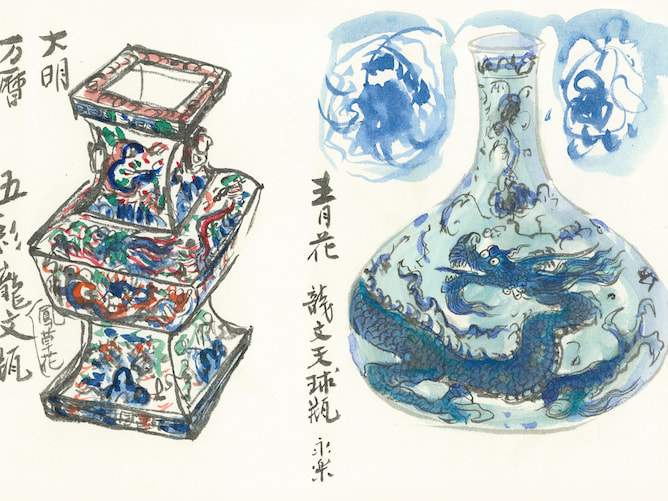 大明
万暦
五彩龍文瓶
鳳草花
青花 龍文天球瓶 永楽